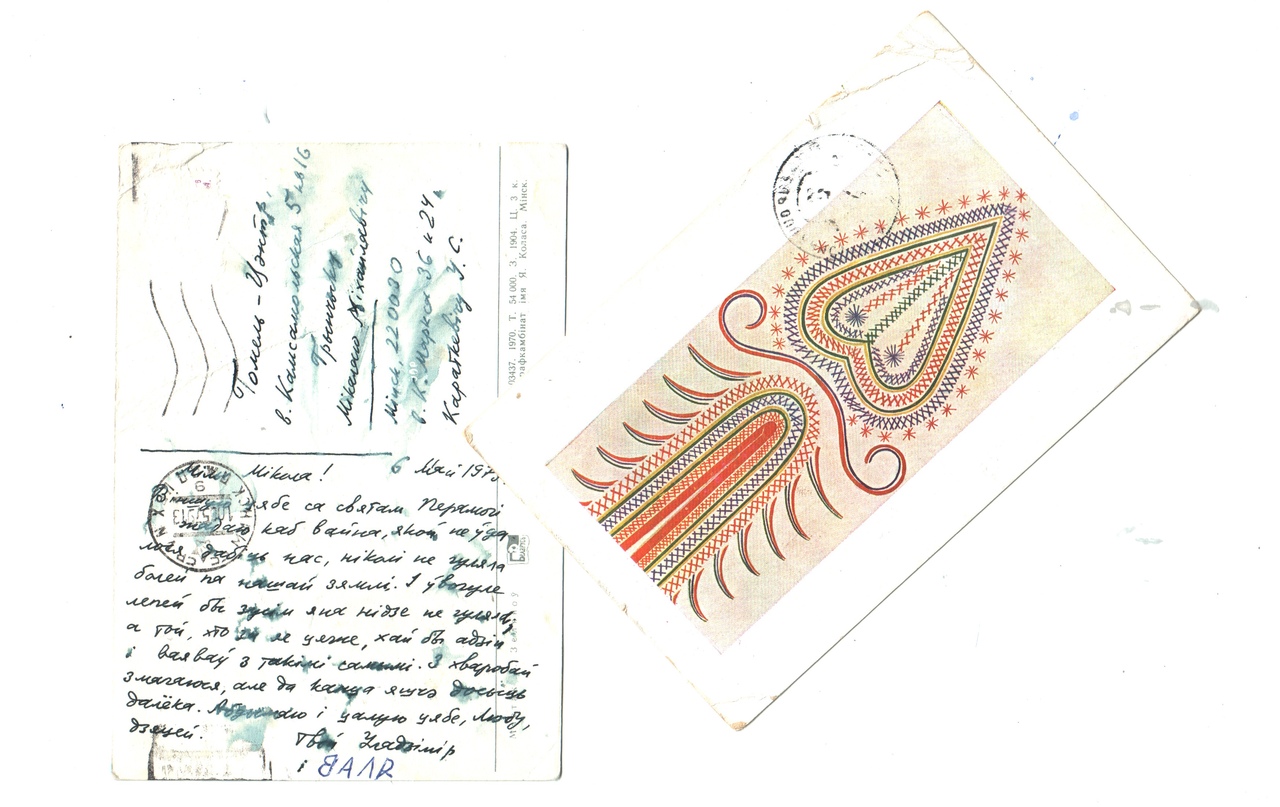 Гомель – Цэнтр,
в. Камсамольская 5 кв 16
Грынчыку
Мікалаю Міхайлавічу
Мінск, 220030
в. К. Маркса 36 к 24
Караткевіч У. С.
03437. 1970. Т. 54 000. З. 1904. Ц. 3 к.
афкамбінат імя Я. Коласа. Мінск.
Мікола! 6 Мая
Віншую цябе са святам Перамогі
жадаю каб вайна, якой не ўда
лося дабіць нас, ніколі не гуляла
болей па нашай зямлі. І ўвогуле
лепей бы зусім яна нідзе не гуляла,
а той, хто за ле цягне, хай бы адзін
і ваяваў з такімі самымі. З хваробай
змагаюся, але да канца яшчэ досыць
далёка. Абдымаю і цалую цябе, Любу,
дзяцей.
Твой Уладзімір
і ВАЛЯ